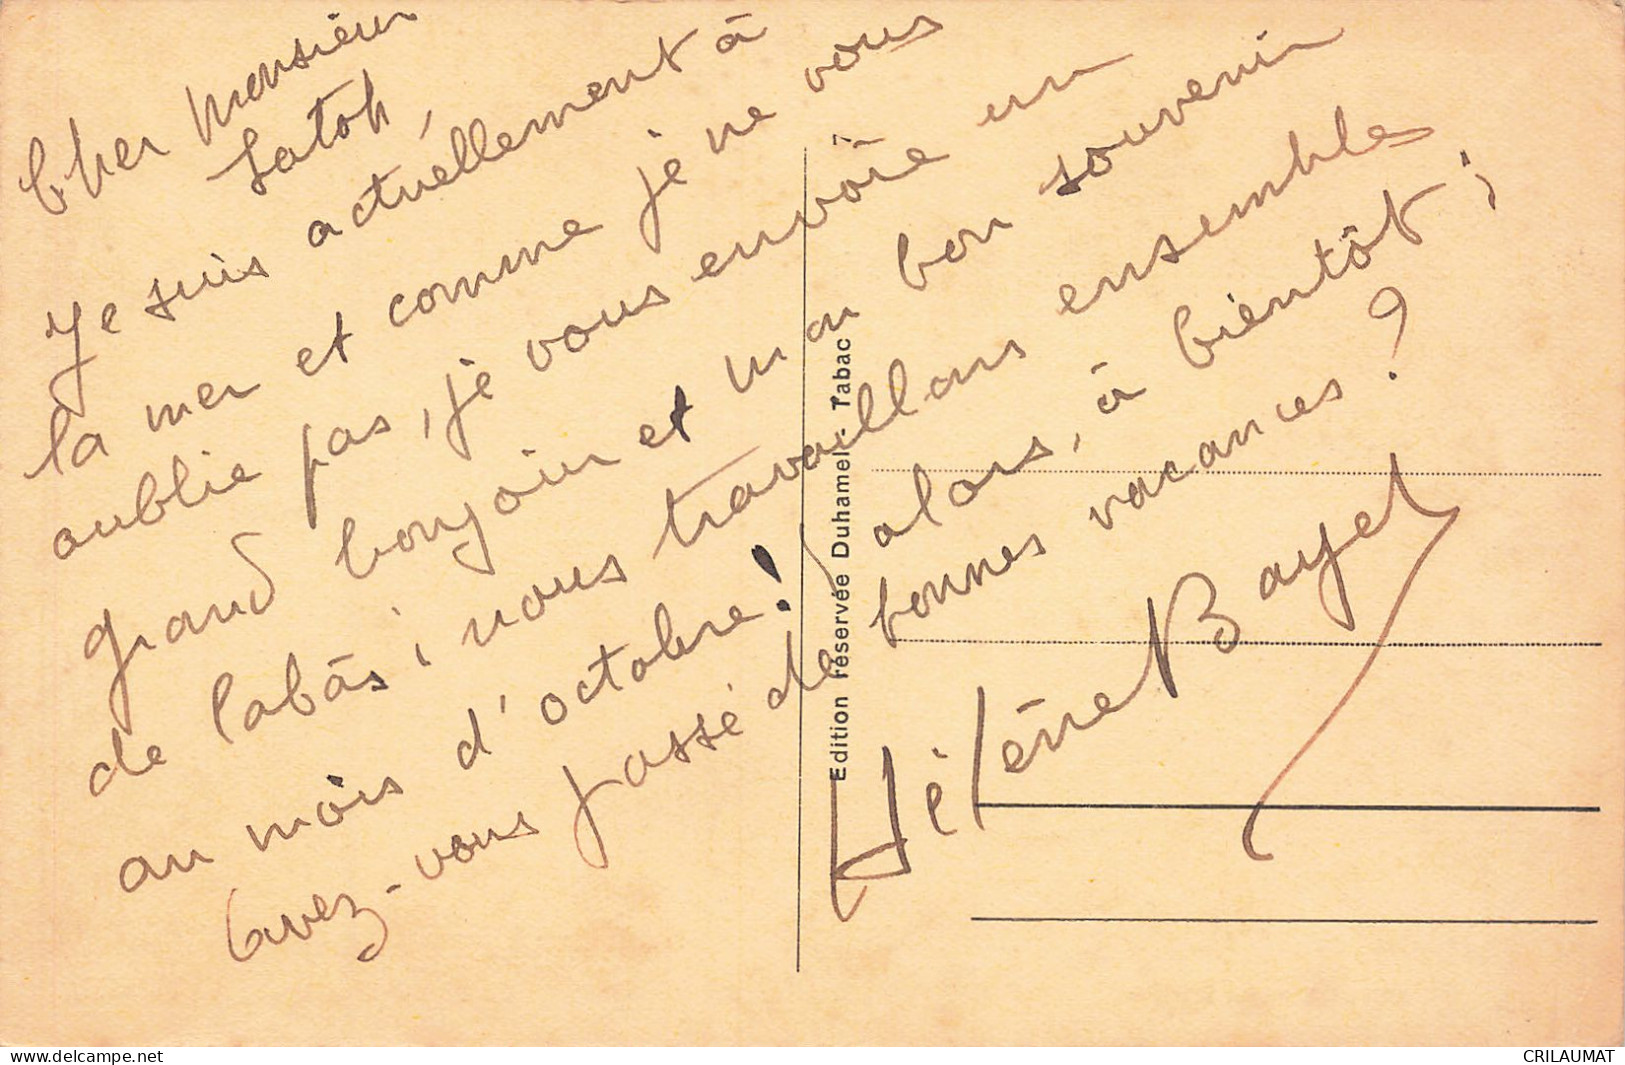 Cher Monsieur
Satoh,
Je suis actuellement à
la mer et comme je ne vous
oublie pas, je vous envoie un
grand bonjour et mon bon souvenir
de labàs, nous travaillons ensembles
au mois d'octobre! alors, à bientôt;
avez-vous passé de bonnes vacances?
Hélène Bayet
Edition réservée Duhamel - Tabac
delcampe.net
CRILAUMAT